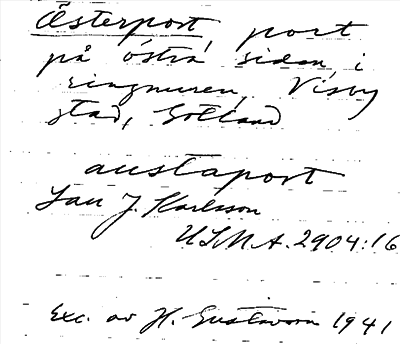 Österport port
på östra sidan i
ringmuren, Visby
stad, Gotland
austaport
Lau J. Karlsson
ULMA. 2904:16
Exc. av H. Gustavson 1941